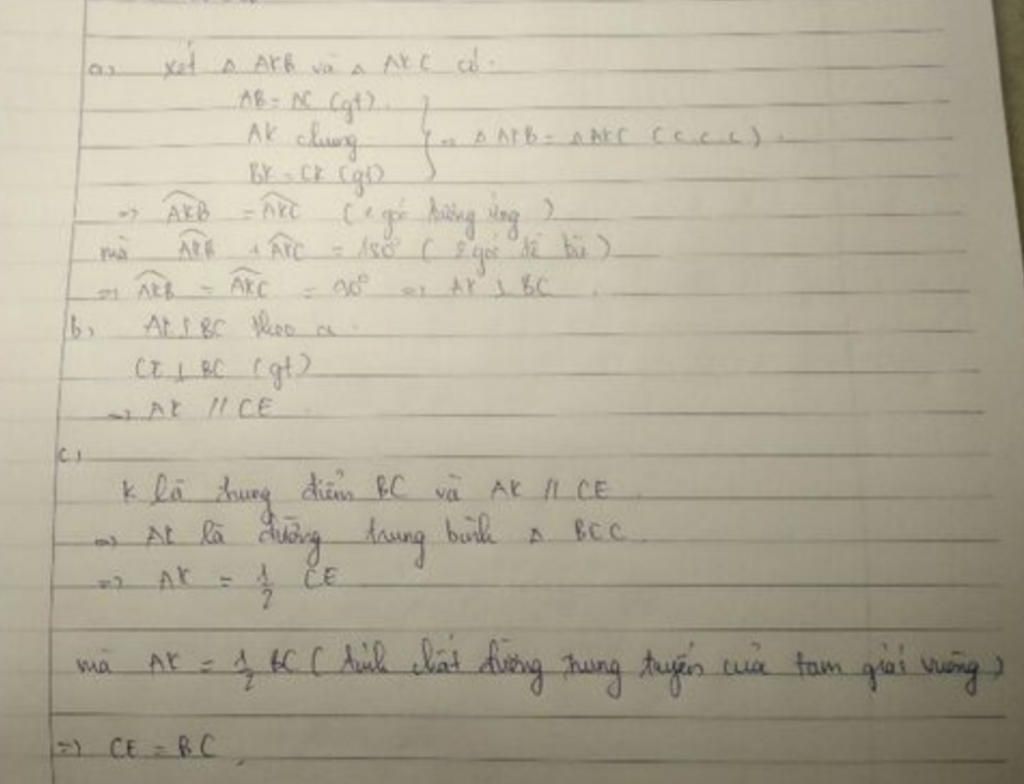 a, xét Δ AKB và Δ AKC có:
AB = AC (gt)
AK chung
BK = CK (gt)
=> Δ AKB = Δ AKC (c.c.c)
=> AKB = AKC (2 góc tương ứng)
mà AKB + AKC = 180° (2 góc kề bù)
=> AKB = AKC = 90° => AK ⊥ BC
b, AK ⊥ BC theo a.
CE ⊥ BC (gt)
=> AK // CE
c,
K là trung điểm BC và AK // CE
=> AK là đường trung bình Δ BCE
=> AK = 1/2 CE
mà AK = 1/2 BC (tính chất đường trung tuyến của tam giác vuông)
=> CE = BC.